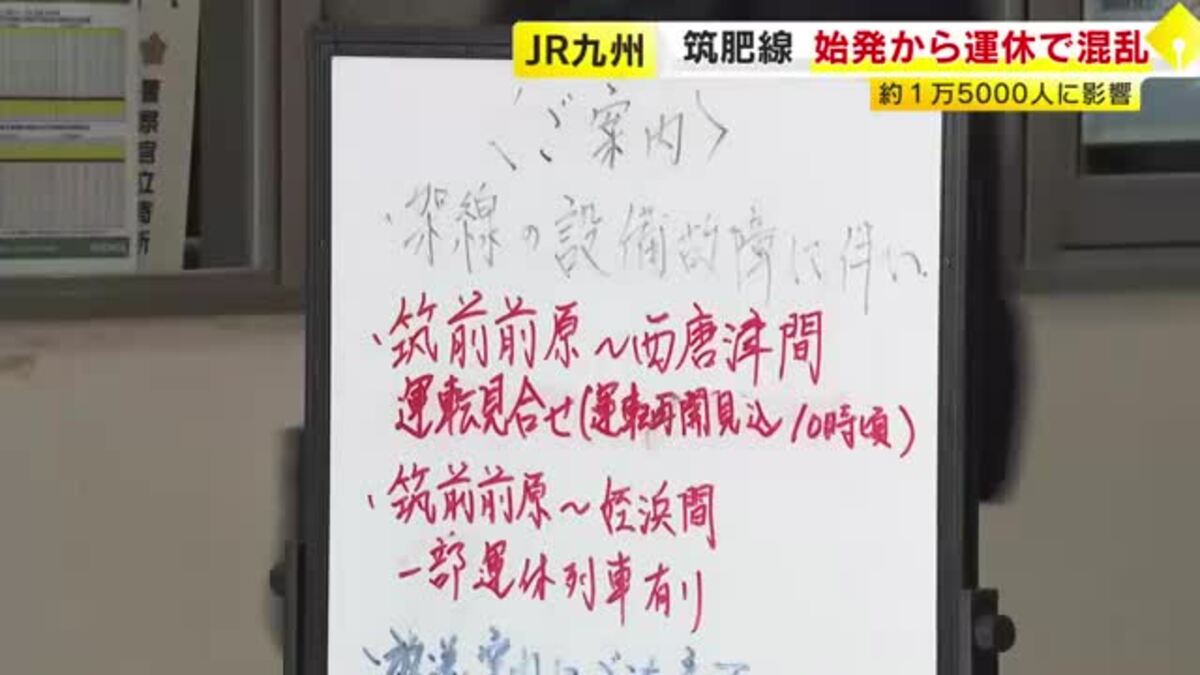 JR九州 筑肥線 始発から運休で混乱
約1万5000人に影響
警察官立寄所
〈ご案内〉
・架線の設備故障に伴い、
・筑前前原〜西唐津間
運転見合せ(運転再開見込10時頃)
・筑前前原〜姪浜間
一部運休列車有り